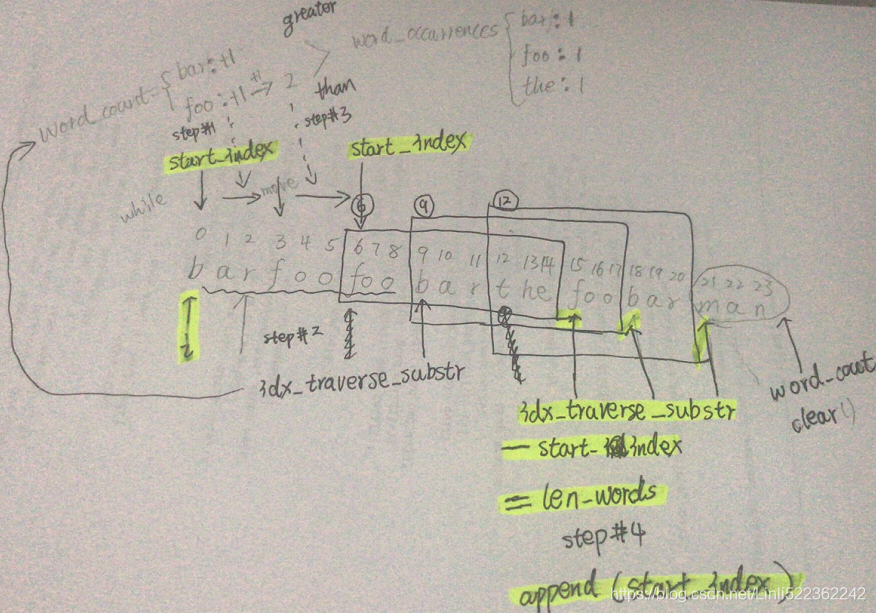 greater
word_occurrences { bar : 1
foo : 1
the : 1
word_count = { bar : +1
foo : +1 +1 → 2
than
step#1
step#3
start_index
start_index
while
move
6 9 12
0 1 2 3 4 5 6 7 8 9 10 11 12 13 14 15 16 17 18 19 20 21 22 23
b a r f o o f o o b a r t h e f o o b a r m a n
i
step#2
idx_traverse_substr
word_cout
clear()
idx_traverse_substr
— start_index
= len-words
step#4
append (start_index)
https://blog.csdn.net/Linli522362242